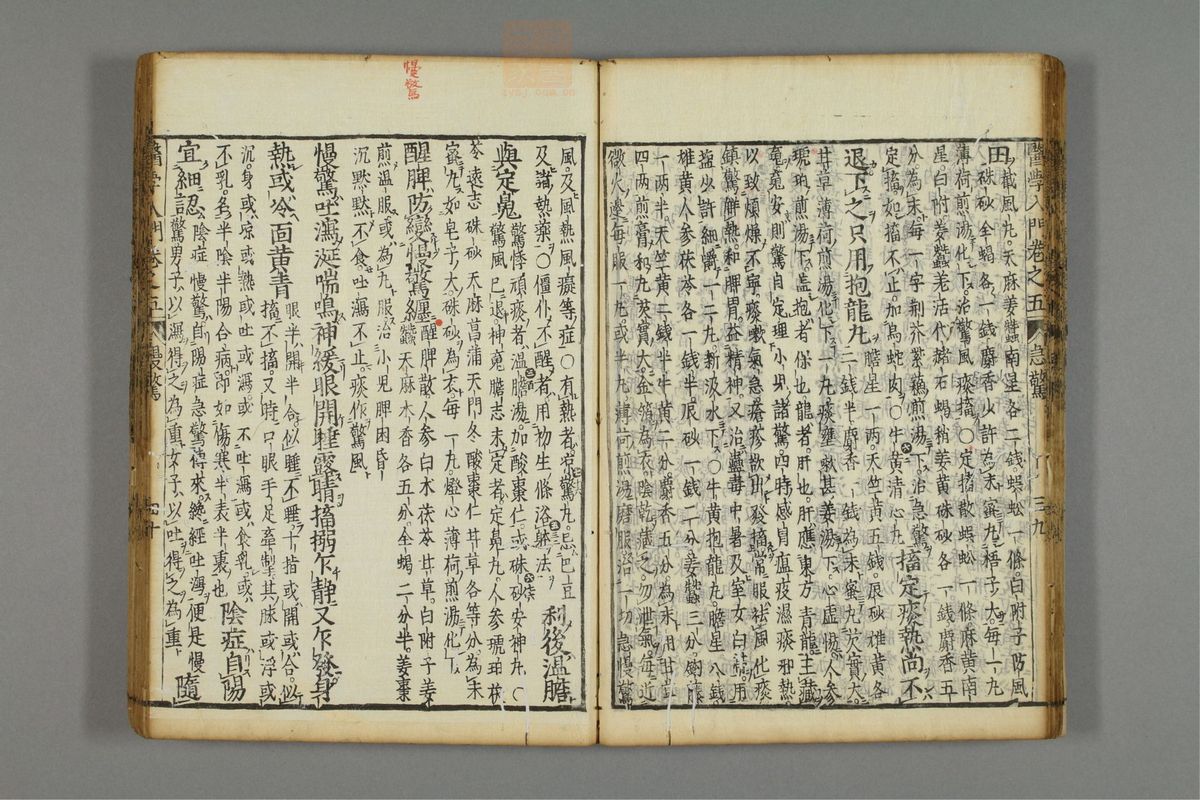 醫學入門卷之五 急驚 三九
田
截風丸。天麻姜蠶南星各二錢。蜈蚣一條。白附子防風
硃砂全蝎各一錢。麝香少許為末。蜜丸梧子大。每一丸
薄荷煎湯化下。治驚風痰搐。○定搐散蜈蚣一條麻黄南
星白附姜蠶羌活代赭石蝎梢姜黄硃砂各一錢麝香五
分為末。每一字荊芥紫蘇煎湯下。治急驚
定搐。如搐不止。加烏蛇肉。○牛黄清心丸
搐定痰熱尚不
退下之只用抱龍丸
膽星一两天竺黄五錢。辰砂雄黄各
二錢半麝香一錢為末。蜜丸芡實大
甘草薄荷煎湯化下一丸。痰壅嗽甚姜湯下。心虚人参
琥珀煎湯下。盖抱者保也龍者肝也。肝應東方青龍主藏
魂魂安則驚自定理小兒諸驚。四時感冒瘟疫濕痰邪熱
以致煩燥不寧痰嗽氣急瘡疹欲出發搐。常服袪風化痰
鎮驚觧熱。和脾胃。益精神。又治蠱毒中暑及室女白帶用
盐少許細嚼一二丸。新汲水下。○牛黄抱龍丸。膽星八錢
雄黄人参茯苓各一錢半。辰砂一錢二分姜蠶三分。鈎藤
一两半天竺黄二錢半牛黄二分麝香五分為末用甘草
四两煎膏和丸芡實大。金箔為衣。陰乾藏之。勿泄氣。每近
微火邊。每服一丸或半丸薄荷煎湯磨服治一切急慢驚
風。及風熱風癡等症○有熱者凉驚丸。忌巴豆
及諸熱藥○僵仆不醒者用初生條浴躰法。
利後温膽
與定魄
驚悸頑痰者。温膽湯加酸棗仁。或硃砂安神丸。○
驚風已退神魂膽志未定者。定魄丸。人参琥珀茯
苓遠志硃砂天麻菖蒲天門冬酸棗仁甘草各等分。為末
蜜丸如皂子大硃砂為衣。每一丸。燈心薄荷煎湯化下
醒脾防變慢驚纏
醒脾散。人参白木茯苓甘草。白附子姜
蠶天麻木香各五分。全蝎二分半。姜棗
煎温服或為丸服治小兒脾困昏
沉默默不食。吐瀉不止。痰作驚風。
慢驚吐瀉涎喘鳴神緩眼開睡露睛搐搦乍静又乍發身
熱或冷面黄青
眼半開半合似睡不睡十指或開或合。似
搐不搐。又時只眼手足牽掣其脉或浮或
沉。身或凉或熱或吐或瀉或不吐瀉或食乳或
不乳。名半陰半陽合病即如傷寒半表半裏也
陰症自陽
宜細認
陰症慢驚自陽症急驚傳來。纔經吐瀉便是慢
驚男子以瀉得之為重女子以吐得之為重
隨
醫學入門卷之五 慢驚
慢驚